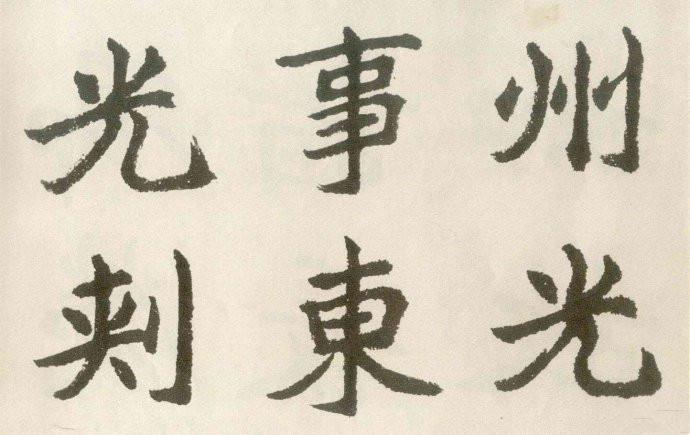 州光
事東
光刾